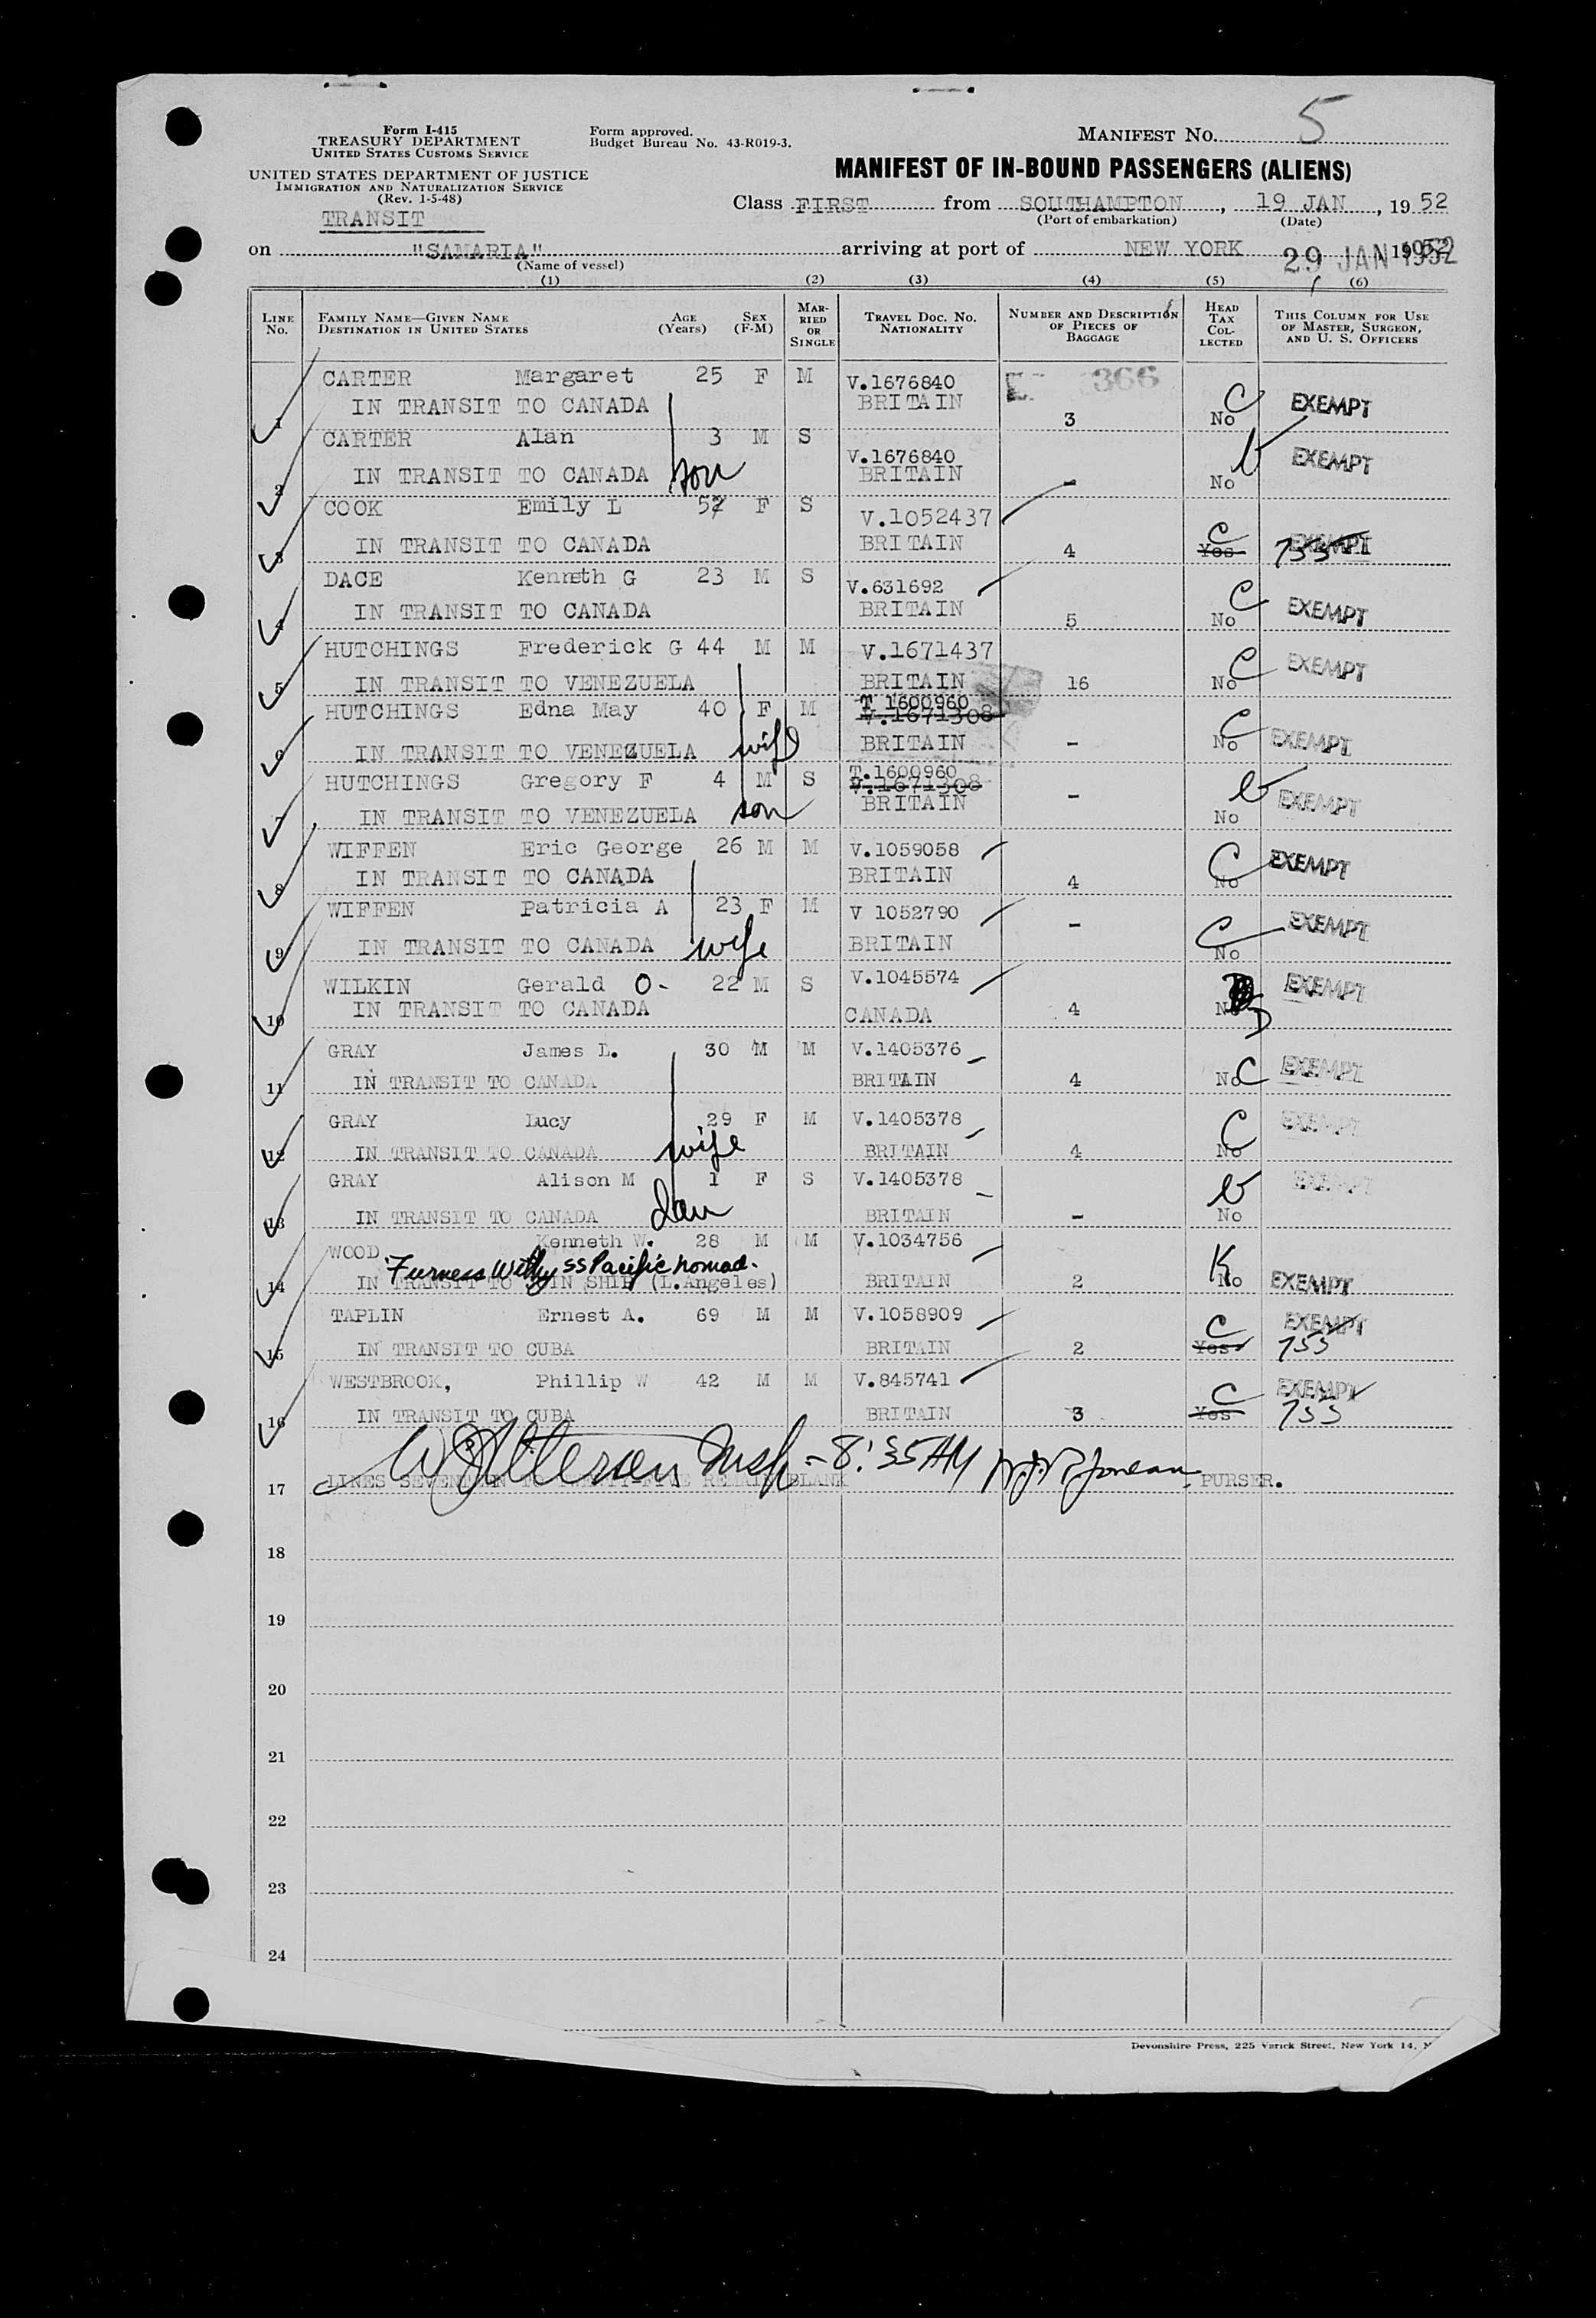 Form I-415
TREASURY DEPARTMENT
UNITED STATES CUSTOMS SERVICE
UNITED STATES DEPARTMENT OF JUSTICE
IMMIGRATION AND NATURALIZATION SERVICE
(Rev. 1-5-48)
TRANSIT
Form approved.
Budget Bureau No. 43-R019-3.
MANIFEST NO. 5
MANIFEST OF IN-BOUND PASSENGERS (ALIENS)
Class FIRST from SOUTHAMPTON, 19 JAN, 19 52
(Port of embarkation) (Date)
on "SAMARIA" arriving at port of NEW YORK 29 JAN 1952
(Name of vessel)
(1) (2) (3) (4) (5) (6)
LINE No. FAMILY NAME—GIVEN NAME DESTINATION IN UNITED STATES AGE (Years) SEX (F-M) MARRIED OR SINGLE TRAVEL DOC. NO. NATIONALITY NUMBER AND DESCRIPTION OF PIECES OF BAGGAGE HEAD TAX COLLECTED THIS COLUMN FOR USE OF MASTER, SURGEON, AND U. S. OFFICERS
CARTER Margaret 25 F M V.1676840 366
1 IN TRANSIT TO CANADA BRITAIN 3 No C EXEMPT
CARTER Alan 3 M S V.1676840
2 IN TRANSIT TO CANADA son BRITAIN - No EXEMPT
COOK Emily L 52 F S V.1052437
3 IN TRANSIT TO CANADA BRITAIN 4 C Yes EXEMPT
DACE Kenneth G 23 M S V.631692
4 IN TRANSIT TO CANADA BRITAIN 5 No C EXEMPT
HUTCHINGS Frederick G 44 M M V.1671437
5 IN TRANSIT TO VENEZUELA BRITAIN 16 No C EXEMPT
HUTCHINGS Edna May 40 F M T 1600960 V.1671308
6 IN TRANSIT TO VENEZUELA wife BRITAIN - No C EXEMPT
HUTCHINGS Gregory F 4 M S T.1600960 V.1671308
7 IN TRANSIT TO VENEZUELA son BRITAIN - No EXEMPT
WIFFEN Eric George 26 M M V.1059058
8 IN TRANSIT TO CANADA BRITAIN 4 No C EXEMPT
WIFFEN Patricia A 23 F M V 1052790
9 IN TRANSIT TO CANADA wife BRITAIN - No C EXEMPT
WILKIN Gerald O- 22 M S V.1045574
10 IN TRANSIT TO CANADA CANADA 4 No D EXEMPT
GRAY James L. 30 M M V.1405376
11 IN TRANSIT TO CANADA BRITAIN 4 No C EXEMPT
GRAY Lucy 29 F M V.1405378
12 IN TRANSIT TO CANADA wife BRITAIN 4 No C EXEMPT
GRAY Alison M 1 F S V.1405378
13 IN TRANSIT TO CANADA dau BRITAIN - No EXEMPT
WOOD Kenneth W. 28 M M V.1034756
Furness Withy SS Pacific Nomad.
14 IN TRANSIT TO JOIN SHIP (L.Angeles) BRITAIN 2 K No EXEMPT
TAPLIN Ernest A. 69 M M V.1058909
15 IN TRANSIT TO CUBA BRITAIN 2 C Yes EXEMPT
WESTBROOK, Phillip W 42 M M V.845741
16 IN TRANSIT TO CUBA BRITAIN 3 C Yes EXEMPT
Insp - 8:35AM
17 LINES SEVENTEEN TO TWENTY-FIVE REMAIN BLANK PURSER.
18
19
20
21
22
23
24
Devonshire Press, 225 Varick Street, New York 14,